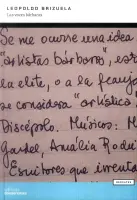 LEOPOLDO BRIZUELA
Las voces bárbaras
Se me ocurre una idea
artistas bárbaros", est
la elite, o a la franja
se considera "artística"
Discépolo. Músicos: M
Gardel, Amalia Rodri
Escritores que inventa